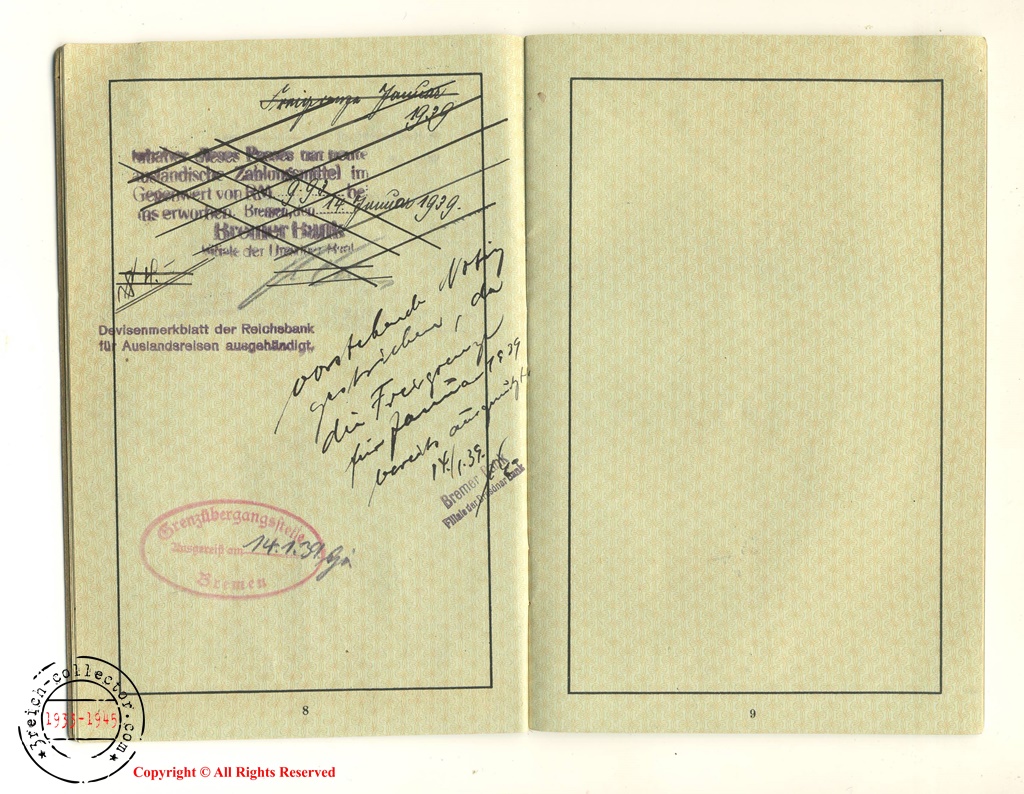 Freigrenze Januar
1939
Inhaber dieses Passes hat heute
ausländische Zahlungsmittel im
Gegenwert von RM. 9.93 bei
uns erworben. Bremen, den 14. Januar 1939.
Bremer Bank
Filiale der Dresdner Bank
Devisenmerkblatt der Reichsbank
für Auslandsreisen ausgehändigt.
vorstehende Notiz
gestrichen, da
die Freigrenze
für Januar 1939
bereits ausgenützt
14/1.39.
Bremer Bank
Filiale der Dresdner Bank
Grenzübergangsstelle
Ausgereist am 14.1.39
Bremen
8
9
3reich-collector.com
1933-1945
Copyright © All Rights Reserved